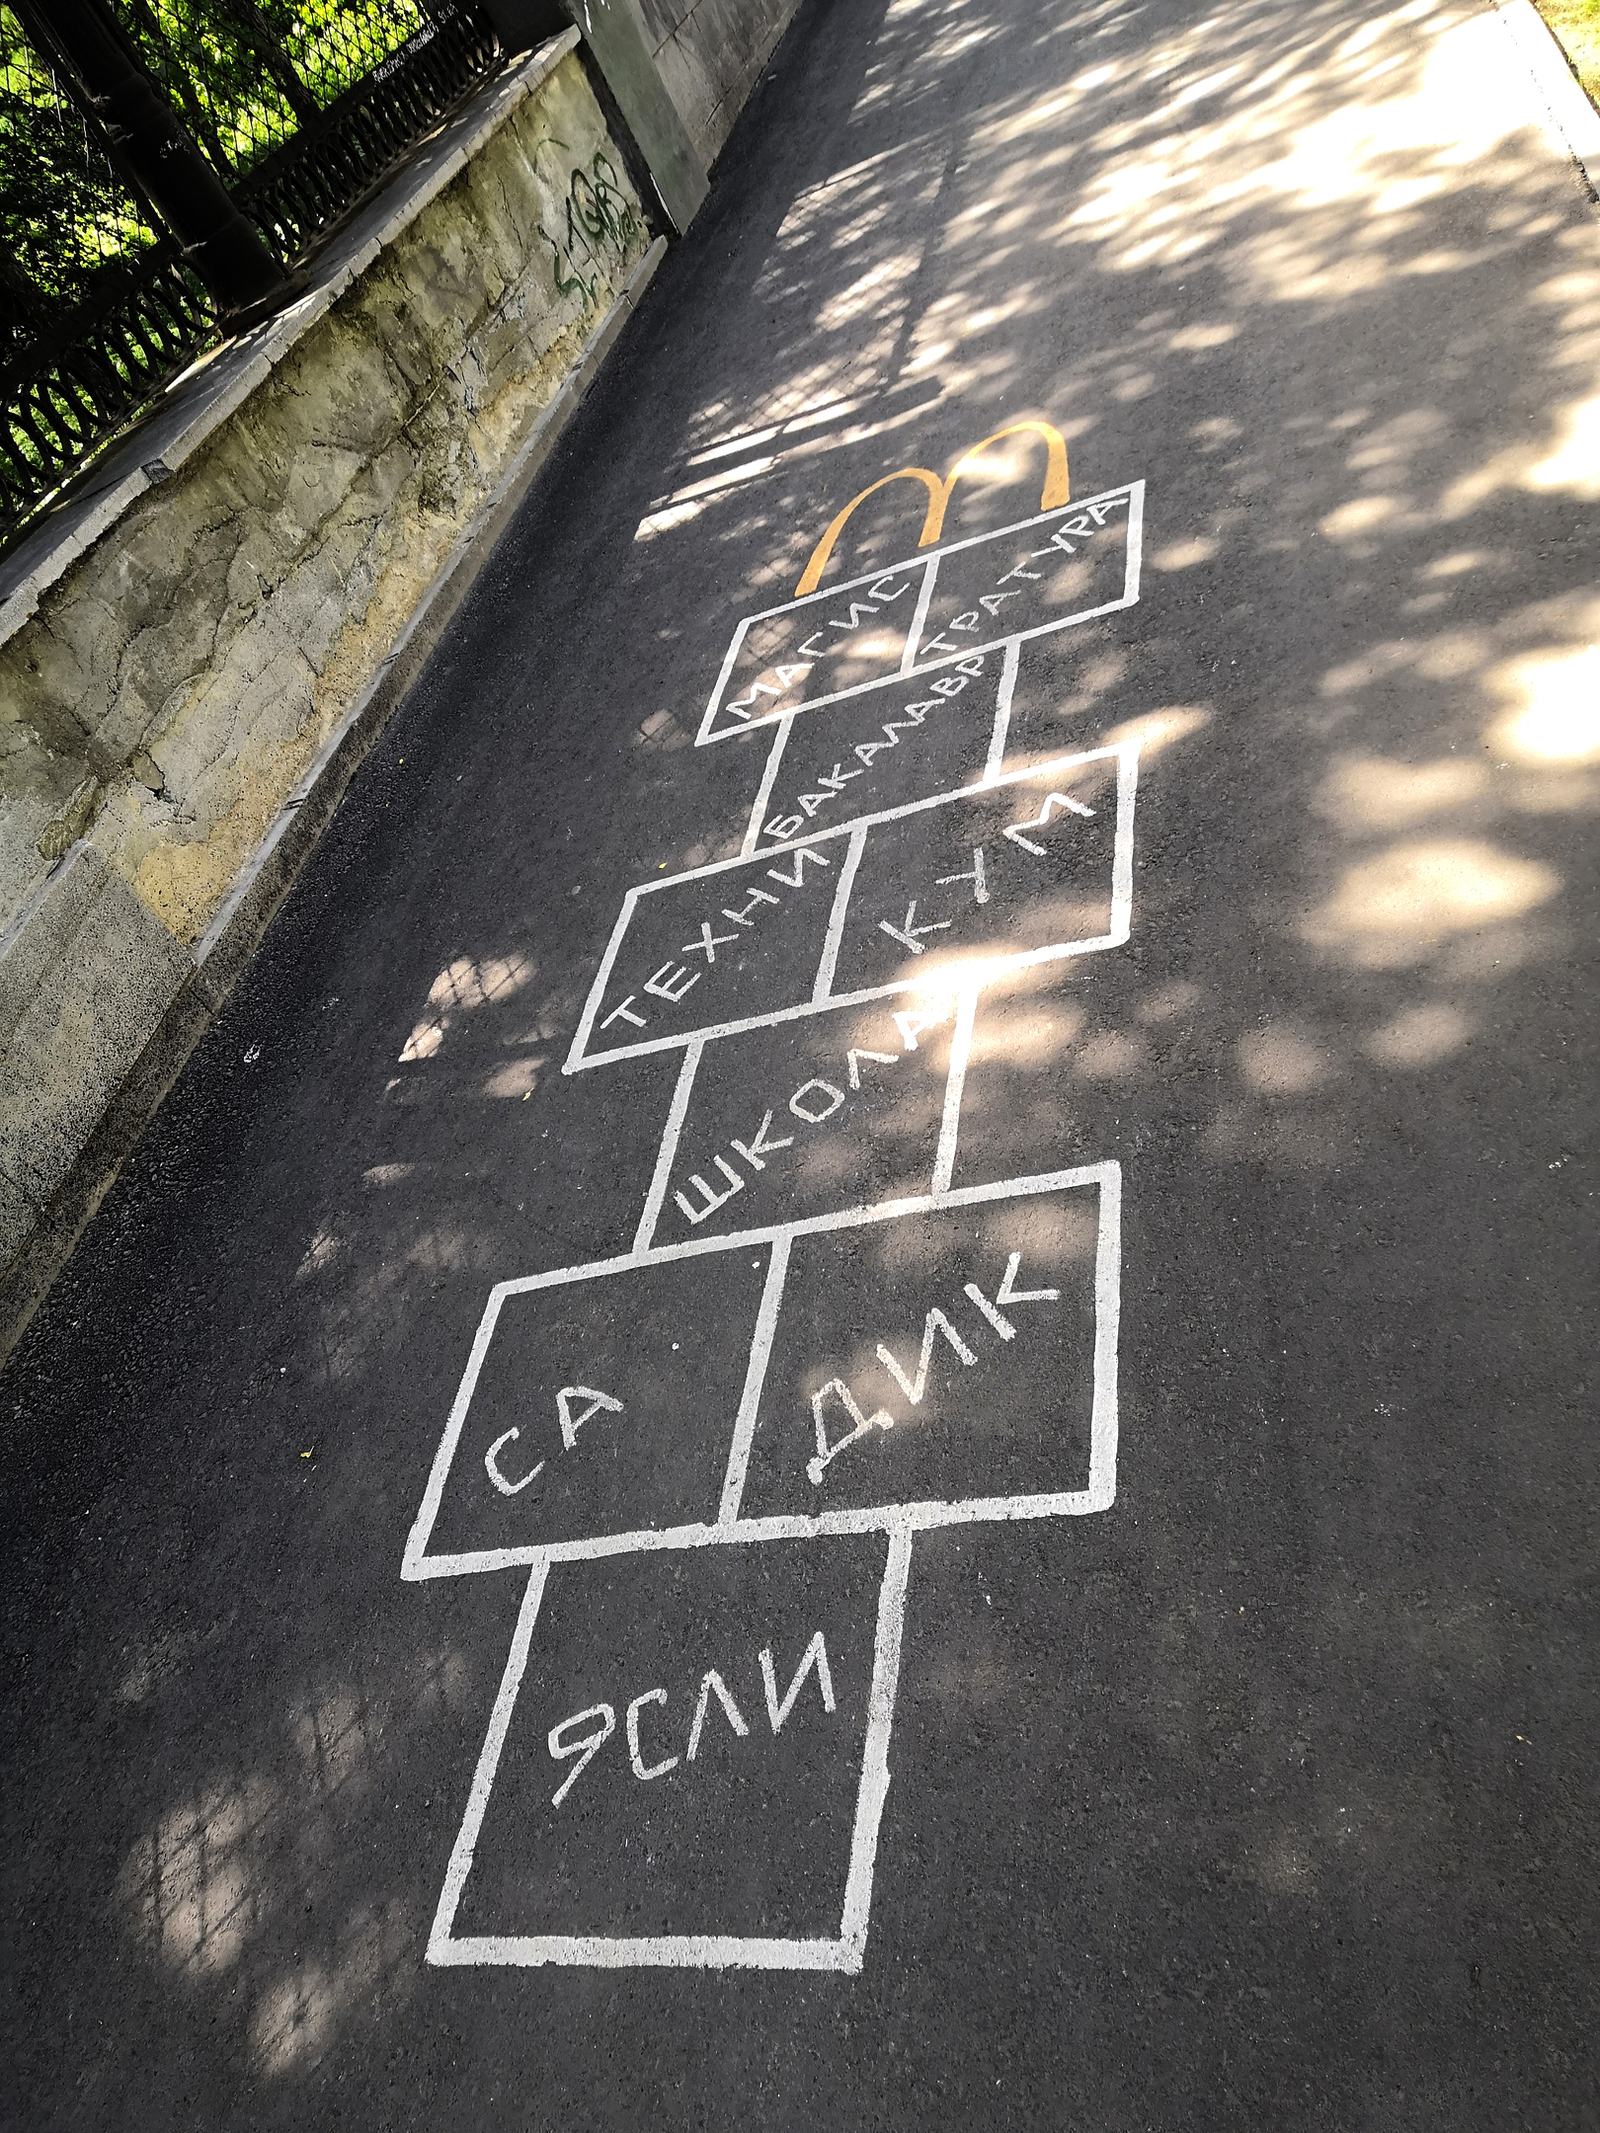 МАГИС ТРАТУРА
БАКАЛАВР
ТЕХНИ КУМ
ШКОЛА
СА ДИК
ЯСЛИ